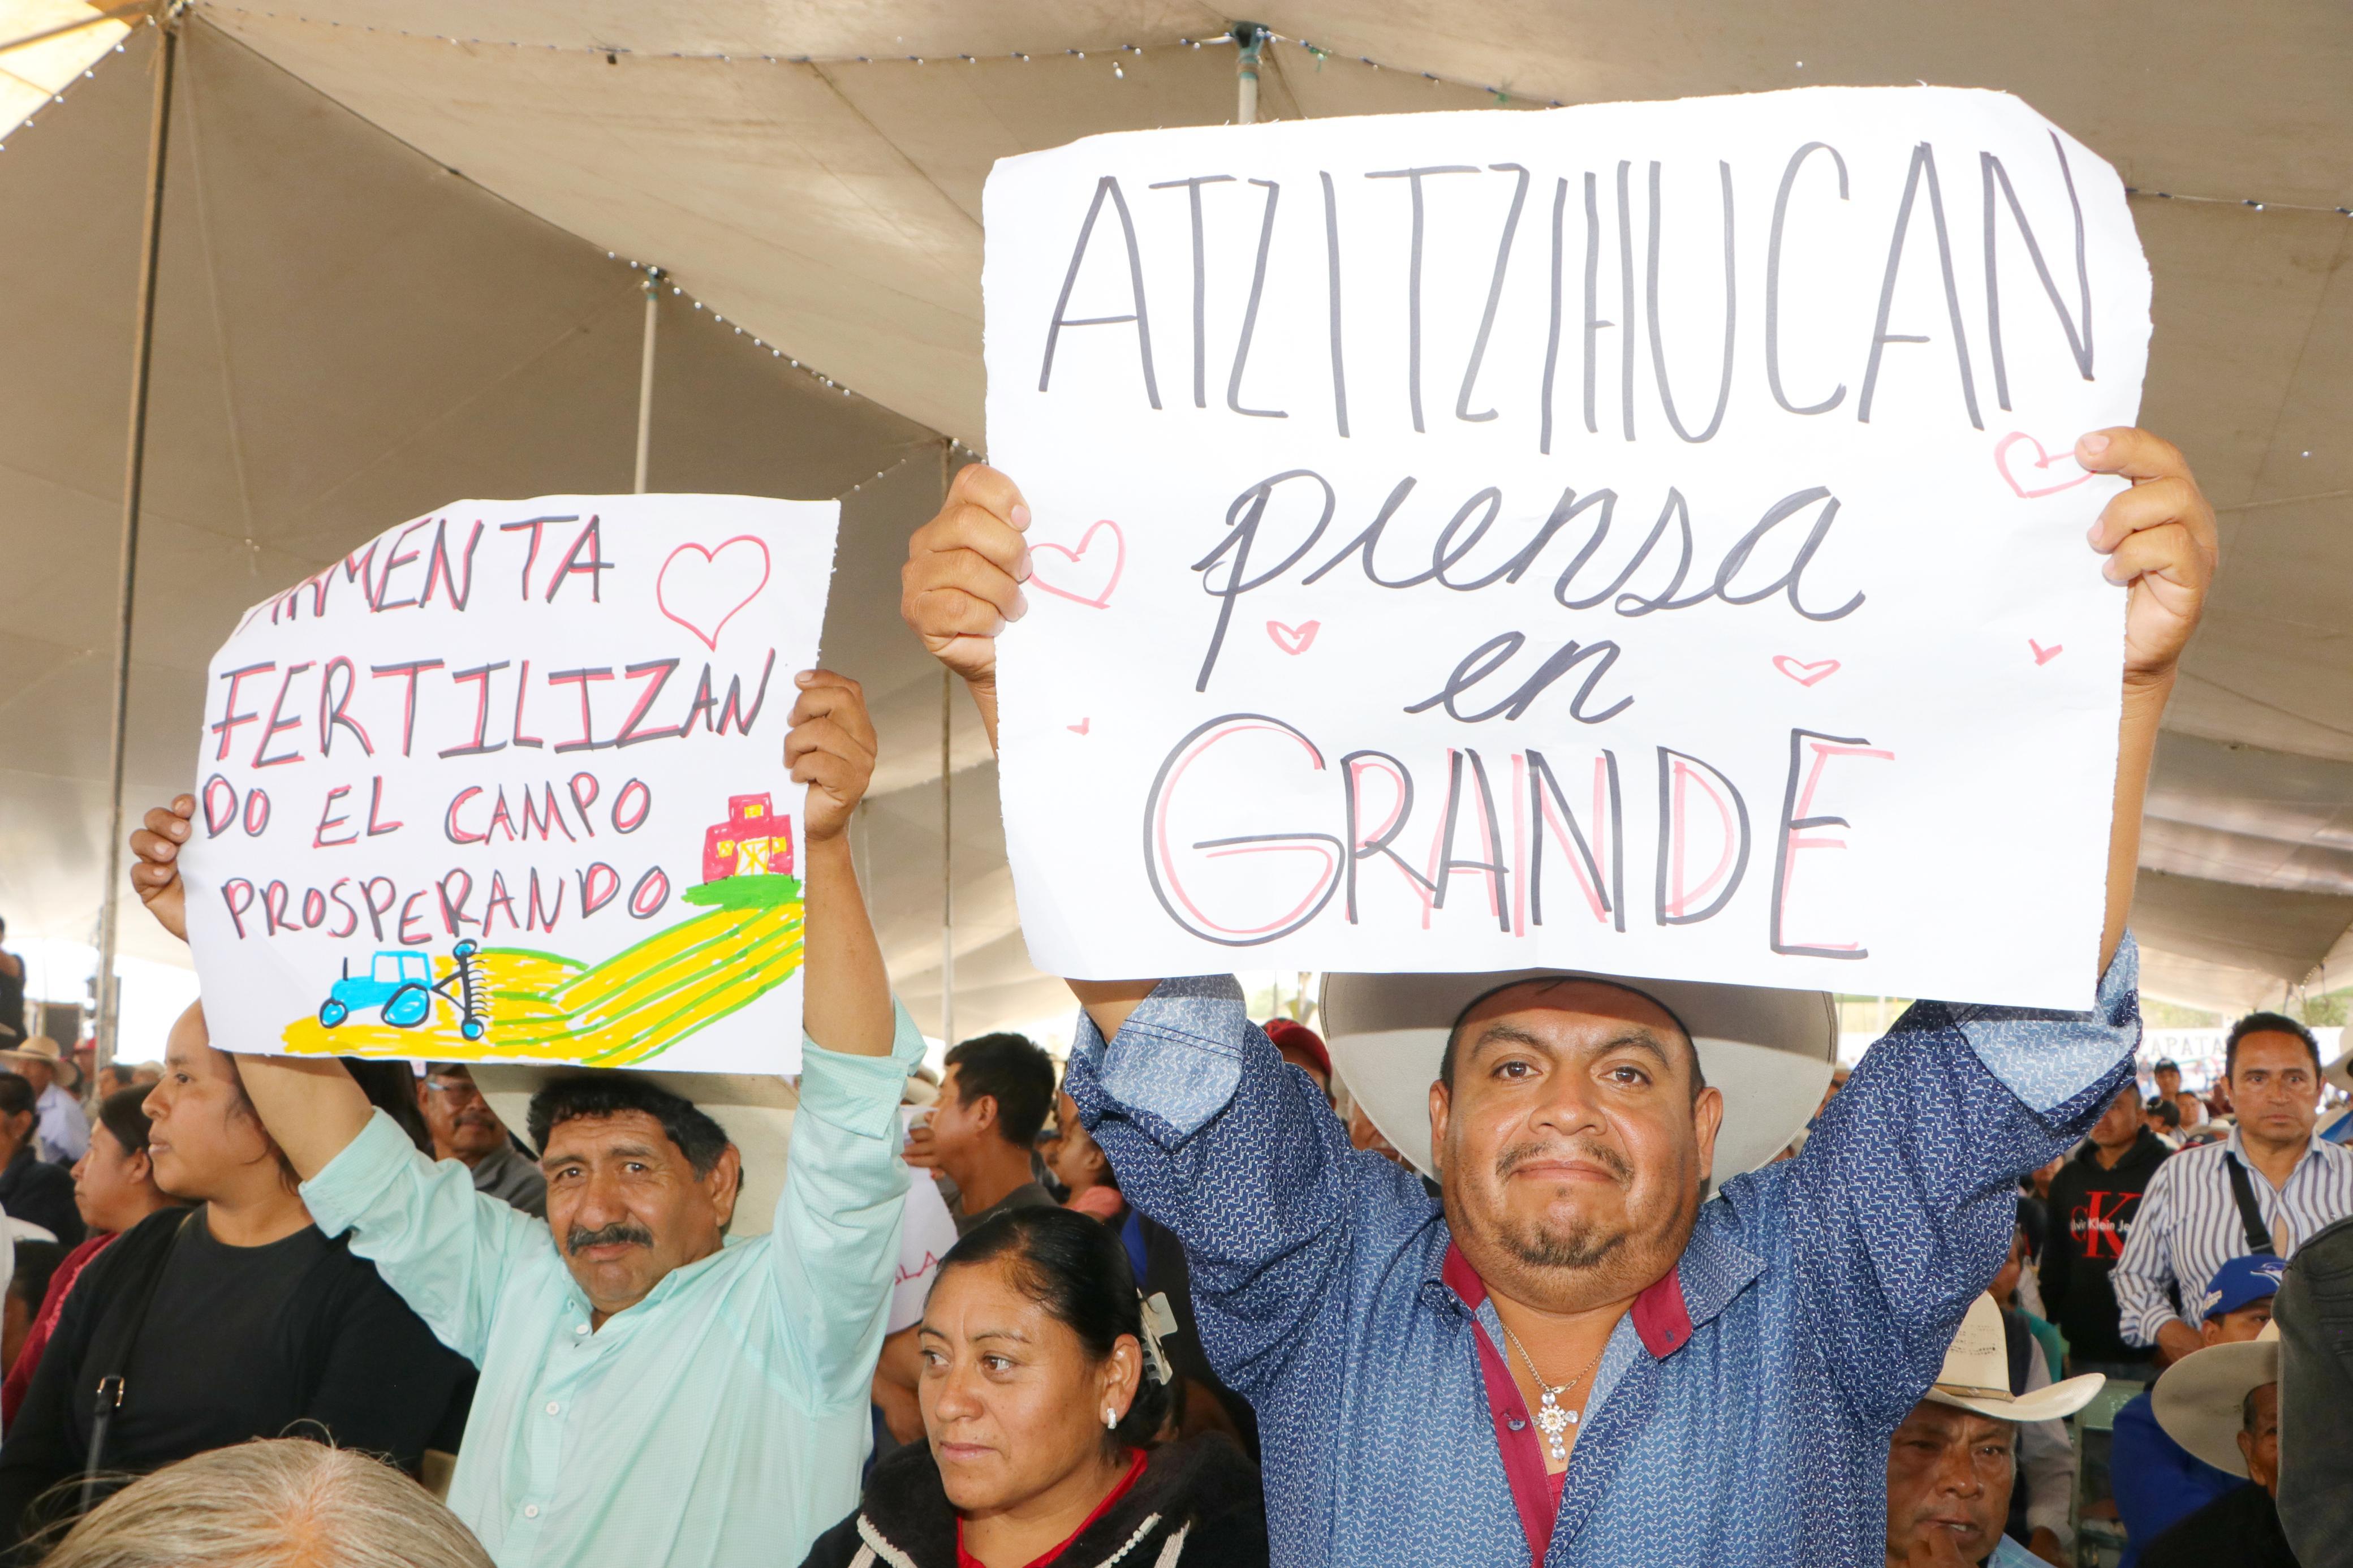 ARMENTA
FERTILIZAN
DO EL CAMPO
PROSPERANDO
ATZITZIHUCAN
piensa
en
GRANDE
CK
Calvin Klein Je